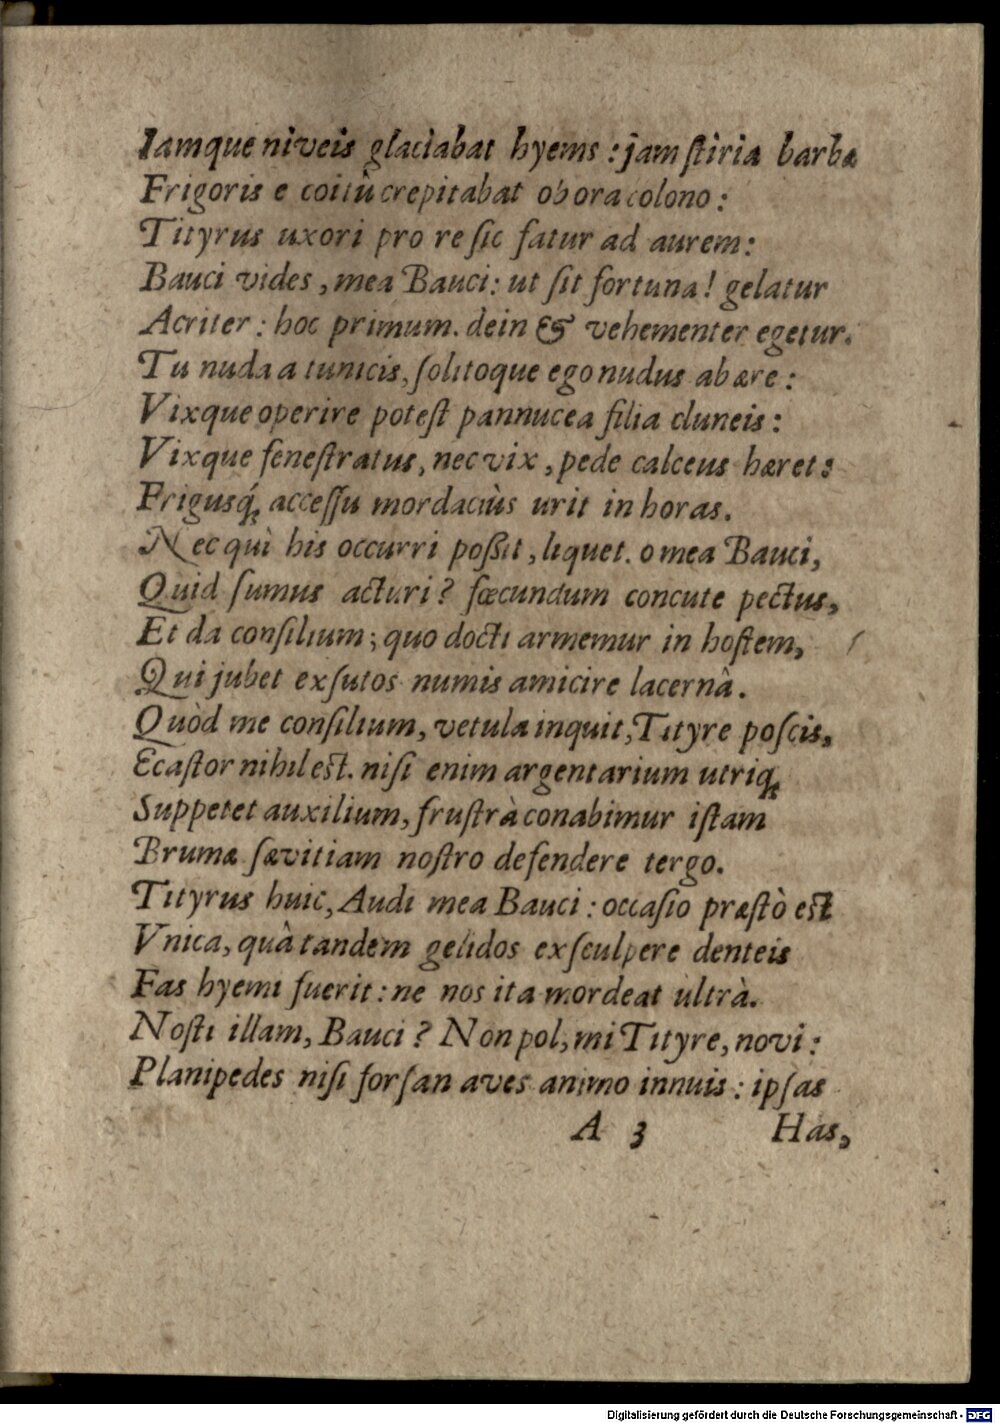 Iamque niveis glaciabat hyems : jam stiria barbæ
Frigoris e coitù crepitabat obora colono :
Tityrus uxori pro re sic fatur ad aurem :
Bauci vides , mea Bauci : ut sit fortuna ! gelatur
Acriter : hoc primum . dein & vehementer egetur .
Tu nuda a tunicis , solitoque ego nudus ab ære :
Vixque operire potest pannucea filia cluneis :
Vixque fenestratus , nec vix , pede calceus hæret :
Frigusq́; accessu mordaciùs urit in horas .
Nec quì his occurri poßit , liquet . o mea Bauci ,
Quid sumus acturi ? fœcundum concute pectus ,
Et da consilium ; quo docti armemur in hostem ,
Qui jubet exsutos numis amicire lacernâ .
Quòd me consilium , vetula inquit , Tityre poscis ,
Ecastor nihil est . nisi enim argentarium utriq;
Suppetet auxilium , frustrà conabimur istam
Brumæ sævitiam nostro defendere tergo .
Tityrus huic , Audi mea Bauci : occasio præstò est
Vnica , quâ tandem gelidos exsculpere denteis
Fas hyemi fuerit : ne nos ita mordeat ultrà .
Nosti illam , Bauci ? Non pol , mi Tityre , novi :
Planipedes nisi forsan aves animo innuis : ipsas
A 3 Has ,
Digitalisierung gefördert durch die Deutsche Forschungsgemeinschaft - DFG